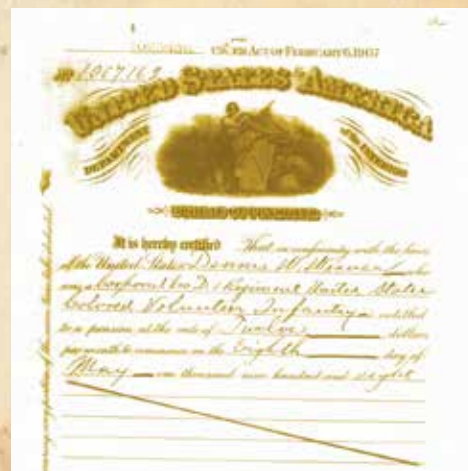 UNDER ACT OF FEBRUARY 6, 1907
No
UNITED STATES of AMERICA
DEPARTMENT of the INTERIOR
BUREAU OF PENSIONS
It is hereby certified That in conformity with the laws
of the United States Dennis W. Weaver who
was a Co. D, 1 Regiment United States
Colored Volunteer Infantry is entitled
to a pension at the rate of Twelve dollars
per month to commence on the Eighth day of
May one thousand nine hundred and eight